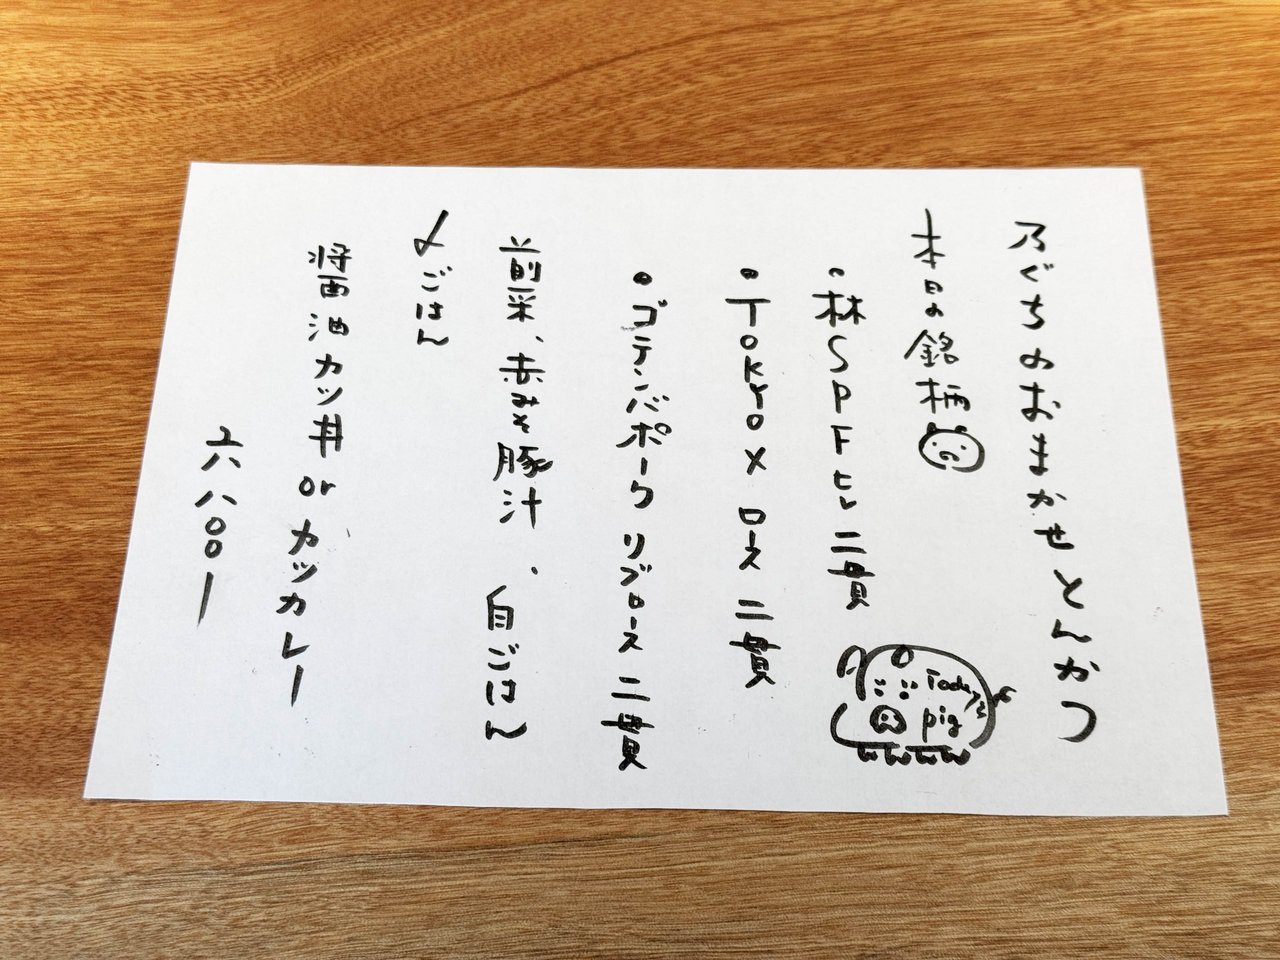 乃ぐちのおまかせとんかつ
本日の銘柄
・林SPFヒレ二貫
・TOKYO X ロース 二貫
・ゴテンバポーク リブロース 二貫
前菜、赤みそ豚汁、白ごはん
〆ごはん
醤油カツ丼 or カツカレー
六八〇〇ー
Today's
pig